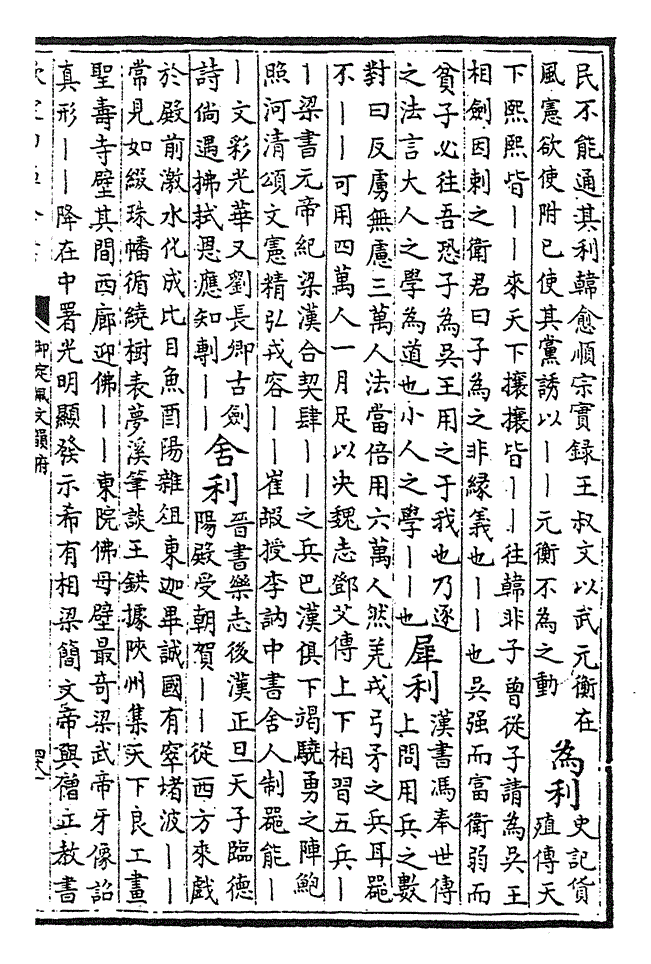 民不能通其利韓愈順宗實録王叔文以武元衡在
風憲欲使附已使其黨誘以丨丨元衡不為之動
為利
史記貨
殖傳天
下熙熙皆丨丨來天下攘攘皆丨丨往韓非子曾從子請為吳王
相劍因刺之衛君曰子為之非緣義也丨丨也吳强而富衛弱而
貧子必往吾恐子為吳王用之于我也乃逐
之法言大人之學為道也小人之學丨丨也
犀利
漢書馮奉世傳
上問用兵之數
對曰反虜無慮三萬人法當倍用六萬人然羌戎弓矛之兵耳器
不丨丨可用四萬人一月足以決魏志鄧艾傳上下相習五兵丨
丨梁書元帝紀梁漢合契肆丨丨之兵巴漢俱下竭驍勇之陣鮑
照河清頌文憲精弘戎容丨丨崔嘏授李訥中書舍人制器能丨
丨文彩光華又劉長卿古劍
詩倘遇拂拭恩應知剸丨丨
舍利
晉書樂志後漢正旦天子臨德
陽殿受朝賀丨丨從西方來戲
於殿前激水化成比目魚酉陽雜俎東迦畢誠國有窣堵波丨丨
常見如綴珠幡循繞樹表夢溪筆談王鉷據陜州集天下良工畫
聖壽寺壁其間西廊迎佛丨丨東院佛母壁最奇梁武帝牙像詔
真形丨丨降在中署光明顯發示希有相梁簡文帝與僧正教書
御定佩文韻府